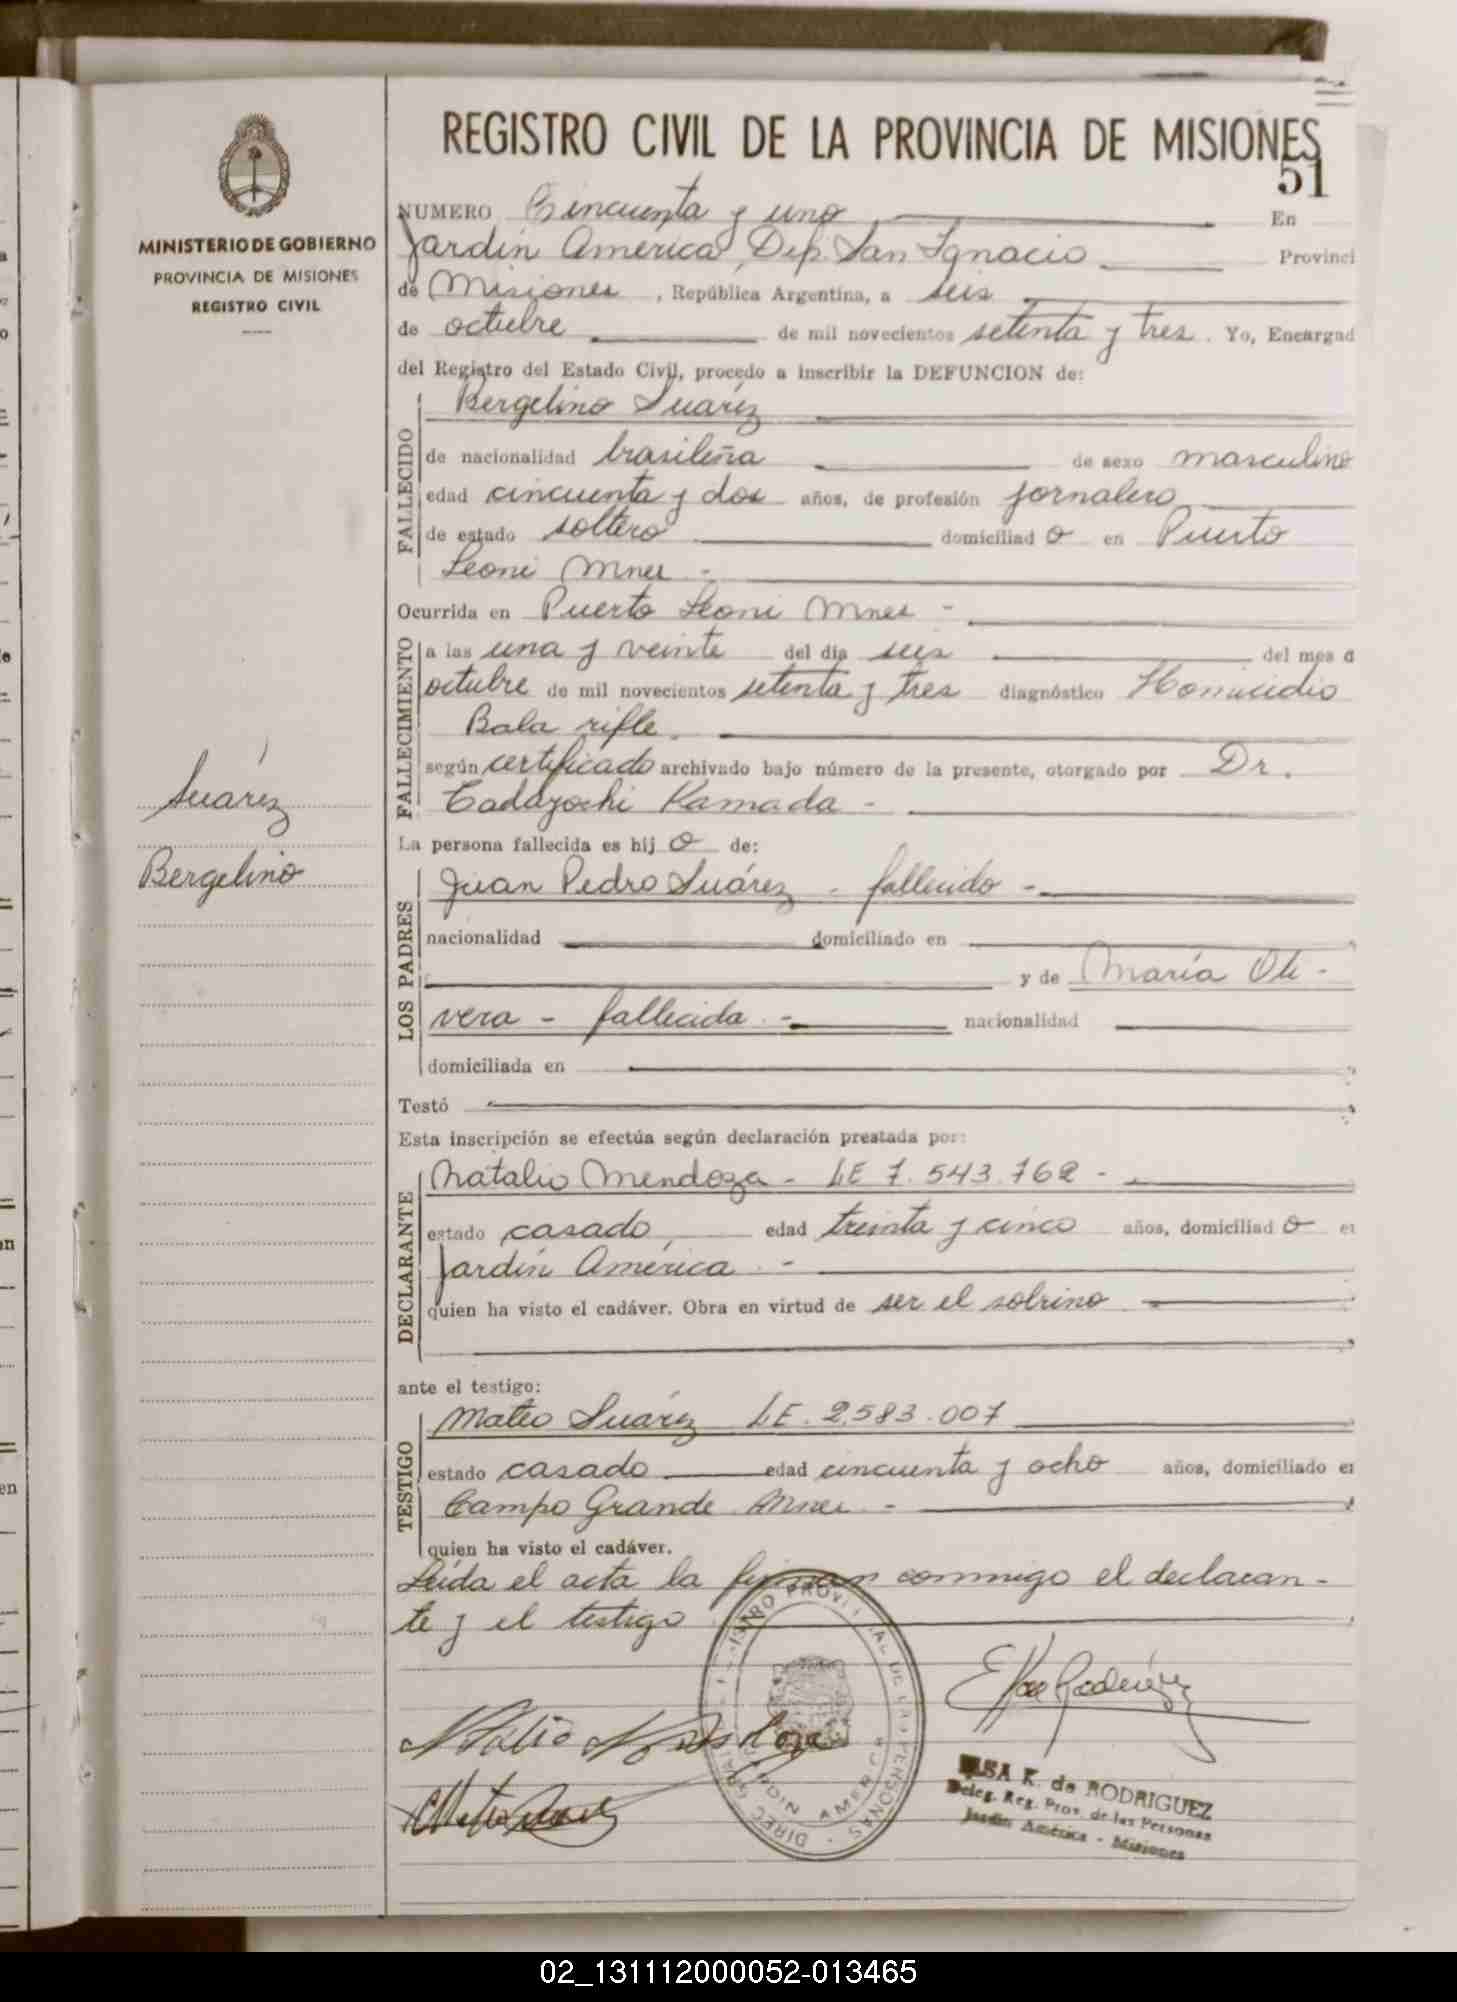 REGISTRO CIVIL DE LA PROVINCIA DE MISIONES
51
MINISTERIO DE GOBIERNO
PROVINCIA DE MISIONES
REGISTRO CIVIL
NUMERO Cincuenta y uno En
Jardín América, Dep. San Ignacio Provinci
de Misiones, República Argentina, a seis
de octubre de mil novecientos setenta y tres. Yo, Encargad
del Registro del Estado Civil, procedo a inscribir la DEFUNCION de:
FALLECIDO
Bergelino Suárez
de nacionalidad brasileña de sexo masculino
edad cincuenta y dos años, de profesión jornalero
de estado soltero domiciliad o en Puerto
Leoni Mnes -
Ocurrida en Puerto Leoni Mnes -
FALLECIMIENTO
a las una y veinte del día seis del mes d
octubre de mil novecientos setenta y tres diagnóstico Homicidio
Bala rifle.
según certificado archivado bajo número de la presente, otorgado por Dr.
Tadayochi Kamada -
Suárez
Bergelino
La persona fallecida es hij o de:
LOS PADRES
Juan Pedro Suárez - fallecido -
nacionalidad domiciliado en
y de María Oli-
vera - fallecida - nacionalidad
domiciliada en
Testó
Esta inscripción se efectúa según declaración prestada por:
DECLARANTE
Natalio Mendoza - LE 7.543.762 -
estado casado, edad treinta y cinco años, domiciliad o e
Jardín América -
quien ha visto el cadáver. Obra en virtud de ser el sobrino
ante el testigo:
TESTIGO
Mateo Suárez LE. 2.583.007
estado casado edad cincuenta y ocho años, domiciliado e
Campo Grande Mnes -
quien ha visto el cadáver.
Leída el acta la firman conmigo el declaran-
te y el testigo
Natalio Mendoza
DIREC. GRAL. REGISTRO PROVINCIAL DE LAS PERSONAS
JARDIN AMERICA
ELSA K. de RODRIGUEZ
Deleg. Reg. Prov. de las Personas
Jardín América - Misiones
02_131112000052-013465